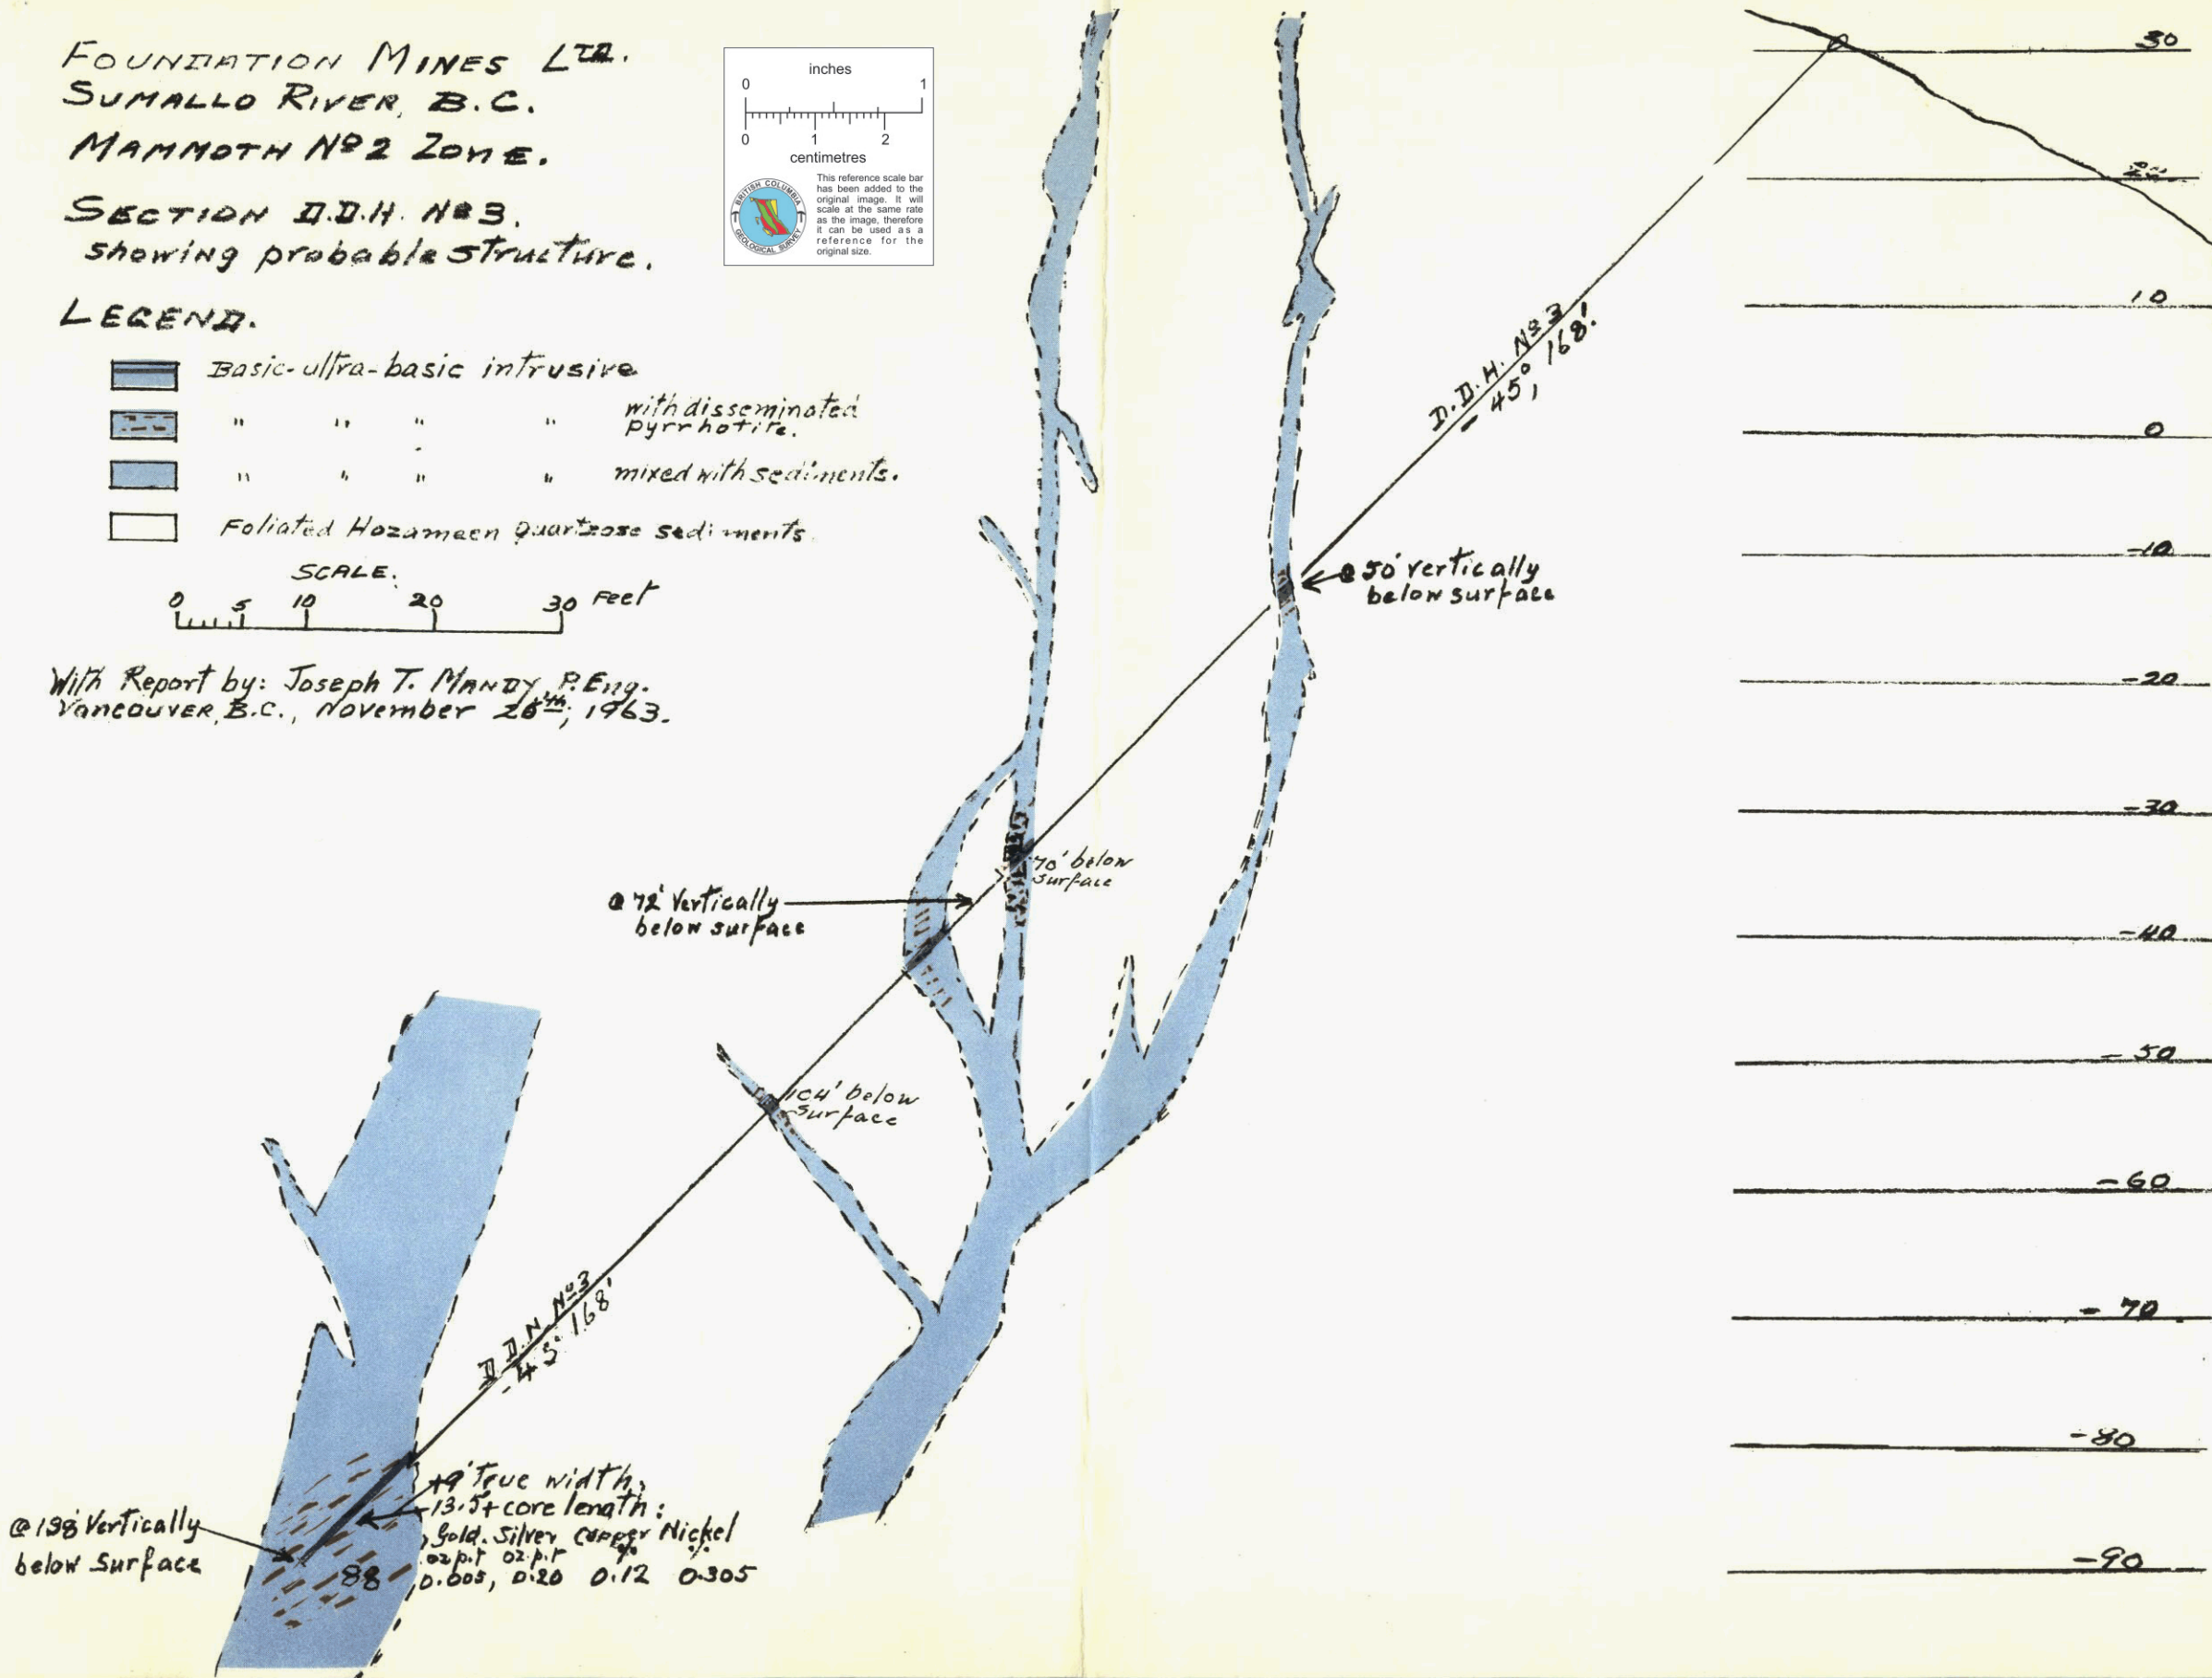 FOUNDATION MINES LTD.
SUMALLO RIVER, B.C.
MAMMOTH No 2 ZONE.
SECTION D.D.H. No 3.
showing probable structure.
LEGEND.
Basic-ultra-basic intrusive
" " " " with disseminated
pyrrhotite.
" " " " mixed with sediments.
Foliated Hozameen Quartzose sediments.
SCALE.
0 5 10 20 30 Feet
With Report by: Joseph T. MANDY, P. Eng.
VANCOUVER, B.C., November 26th, 1963.
inches
0 1
0 1 2
centimetres
This reference scale bar
has been added to the
original image. It will
scale at the same rate
as the image, therefore
it can be used as a
reference for the
original size.
BRITISH COLUMBIA
GEOLOGICAL SURVEY
30
20
10
0
-10
-20
-30
-40
-50
-60
-70
-80
-90
D.D.H. No 3
- 45°, 168'.
@ 50' vertically
below surface
70' below
surface
@ 72' Vertically
below surface
104' below
surface
D.D.H. No 3
- 45° 168'
+9' True width,
-13.5+ core length:
Gold. Silver Copper Nickel
oz p.t oz. p.t % %
0.005, 0.20 0.12 0.305
@ 138' Vertically
below surface
88